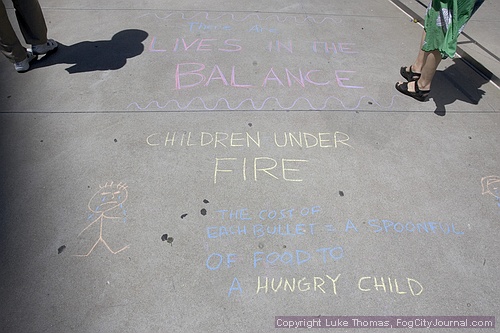 There Are
LIVES IN THE
BALANCE
CHILDREN UNDER
FIRE
THE COST OF
EACH BULLET = A SPOONFUL
OF FOOD TO
A HUNGRY CHILD
Copyright Luke Thomas, FogCityJournal.com